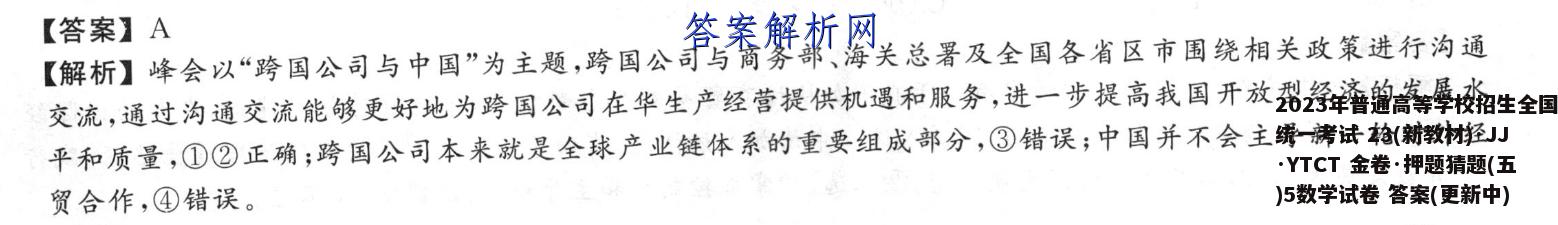 答案解析网
【答案】A
【解析】峰会以“跨国公司与中国”为主题,跨国公司与商务部、海关总署及全国各省区市围绕相关政策进行沟通
交流,通过沟通交流能够更好地为跨国公司在华生产经营提供机遇和服务,进一步提高我国开放型经济的发展水
平和质量,①②正确;跨国公司本来就是全球产业链体系的重要组成部分,③错误;中国并不会主
贸合作,④错误。
2023年普通高等学校招生全国
统一考试 23(新教材)·JJ
·YTCT 金卷·押题猜题(五
)5数学试卷 答案(更新中)